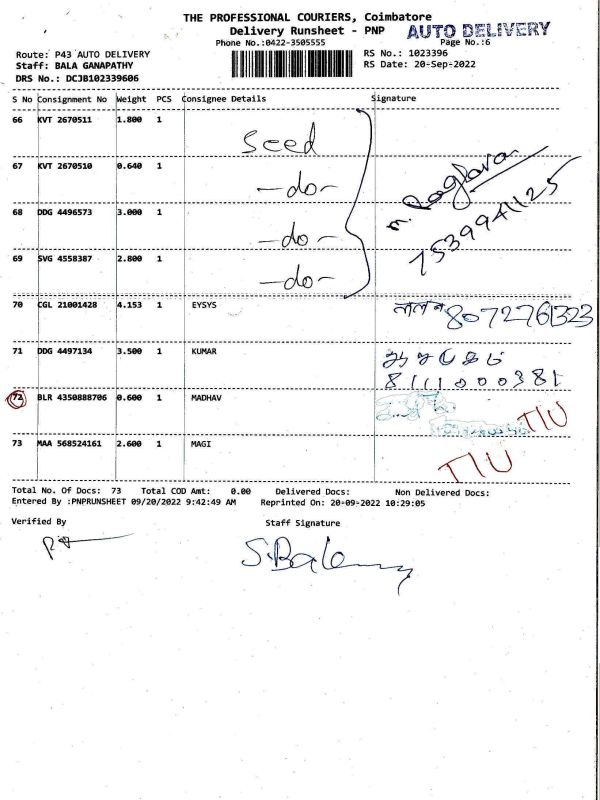 THE PROFESSIONAL COURIERS, Coimbatore
Delivery Runsheet - PNP AUTO DELIVERY
Phone No.:0422-3505555 Page No.:6
Route: P43 AUTO DELIVERY RS No.: 1023396
Staff: BALA GANAPATHY RS Date: 20-Sep-2022
DRS No.: DCJB102339606
S No Consignment No Weight PCS Consignee Details Signature
66 KVT 2670511 1.800 1 seed
67 KVT 2670510 0.640 1 -do-
68 DDG 4496573 3.000 1 -do-
69 SVG 4558387 2.800 1 -do-
7539941125
70 CGL 21001428 4.153 1 EYSYS 8072761323
71 DDG 4497134 3.500 1 KUMAR
8111000381
72 BLR 4350888706 0.600 1 MADHAV T/U
73 MAA 568524161 2.600 1 MAGI T/U
Total No. Of Docs: 73 Total COD Amt: 0.00 Delivered Docs: Non Delivered Docs:
Entered By :PNPRUNSHEET 09/20/2022 9:42:49 AM Reprinted On: 20-09-2022 10:29:05
Verified By Staff Signature